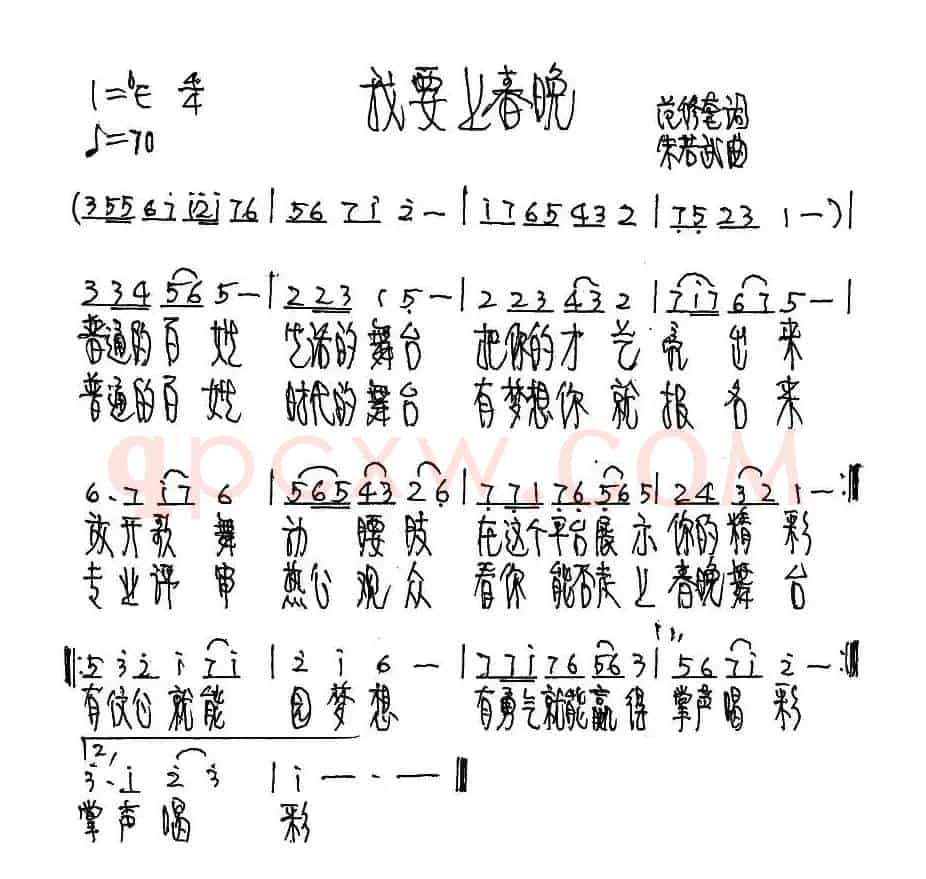 我要上春晚
1=♭E 4/4
♩=70
范修奎词
朱若武曲
(3 5 5 6 i i 2 i 7 6 | 5 6 7 i 2 — | i 7 6 5 4 3 2 | 7 5 2 3 1 —) |
3 3 4 5 6 5 — | 2 2 3 1 5 — | 2 2 3 4 3 2 | 7 i 7 6 7 5 — |
普通的百姓 生活的舞台 把你的才艺亮出来
普通的百姓 时代的舞台 有梦想你就报名来
qpcxw.com
6. 7 i 7 6 | 5 6 5 4 3 2 6 | 7 7 1 7 6 5 6 5 | 2 4 3 2 1 — :||
放开歌舞 动腰肢 在这个平台展示你的精彩
专业评审 热心观众 看你能否走上春晚舞台
||: 5 3 2 i 7 i | 2 i 6 — | 7 7 i 7 6 5 6 3 | 1, 5 6 7 i 2 — :||
有信心就能 圆梦想 有勇气就能赢得掌声喝彩
2,
3. i 2 3 | i — — — ||
掌声喝 彩